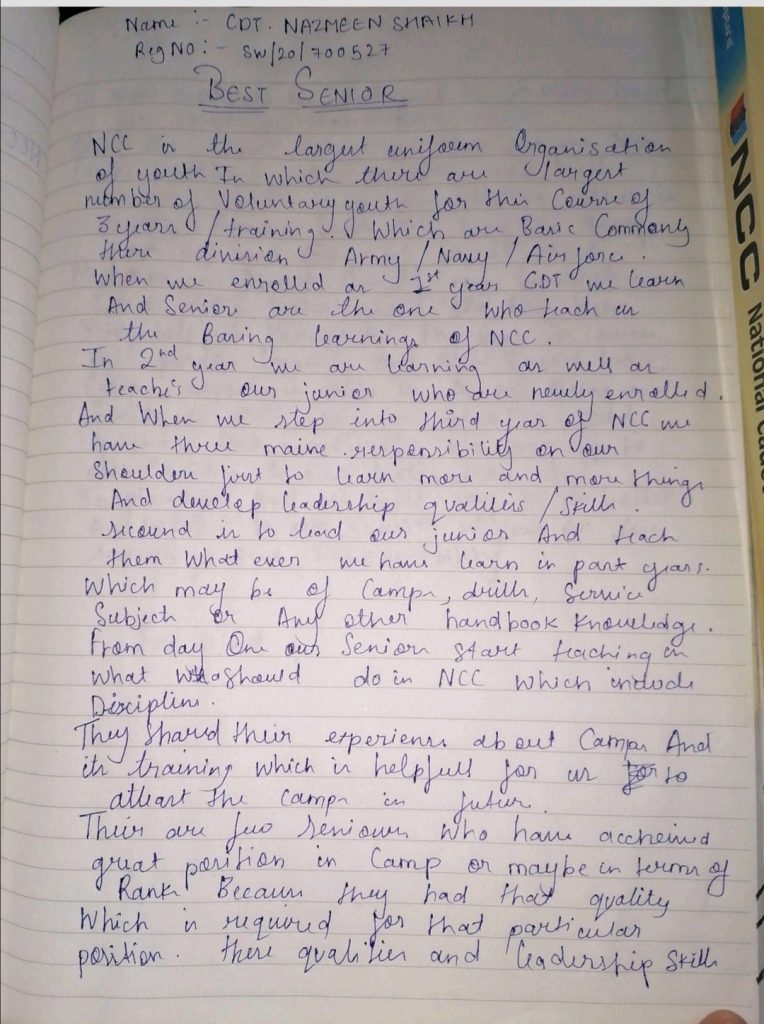 Name :- CDT. NAZMEEN SHAIKH
Reg NO :- SW/20/700527
BEST SENIOR
NCC is the largest uniform Organisation
of youth In which there are largest
number of Voluntary youth for this Course of
3 years / training. Which are Basic Commonly
there division Army / Navy / Air force.
When we enrolled as 1st year CDT we learn
And Seniors are the one who teach us
the Basing learnings of NCC.
In 2nd year we are learning as well as
teache's our junior who are newly enrolled.
And When we step into third year of NCC we
have three maine responsibility on our
Shoulders first to learn more and more things
And develop leadership qualities / Skills.
secound is to lead our junior And teach
them What ever we have learn in past years.
Which may be of Camps, drills, Service
Subject or Any other handbook Knowledge.
from day One our Seniors start teaching us
what we should do in NCC which include
Discipline.
They Shared their experience about Camps And
its training which is helpfull for us to
atleast the camps in futur.
Their are few seniours who have accheived
great position in Camp or maybe in terms of
Rank Because they had that quality
Which is required for that particular
position. these qualities and leadership skills
NCC
National Cadet